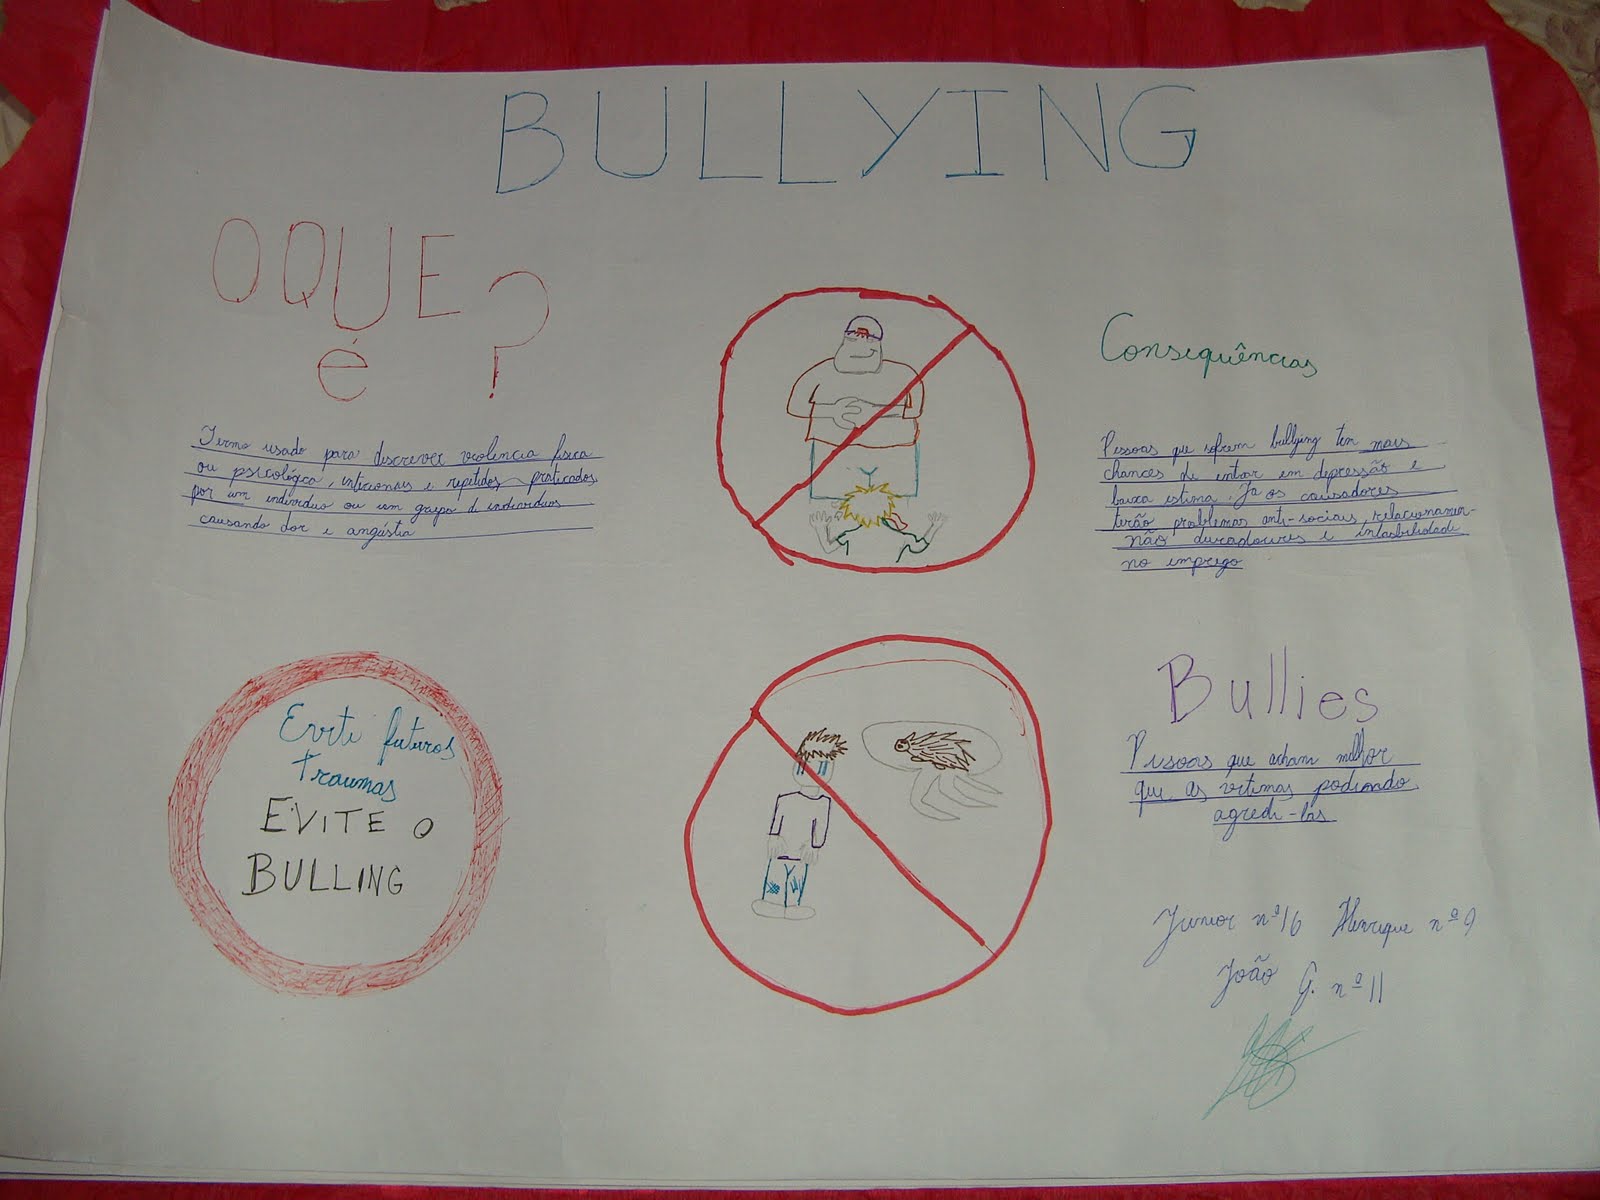 BULLYING
O QUE
é ?
Termo usado para discrever violência física
ou psicológica, inticionais e repetidos praticados
por um individuo ou um grupo di individuos
causando dor e angústia
Consequências
Pessoas que sofrem bullying ten mais
chances di entrar em depressão e
baixa estima. Ja os causadores
terão problemas anti-sociais, relacionamen-
não duradoures e
no emprego
Evite futuros
traumas
EVITE O
BULLING
Bullies
Pessoas que acham melhor
que as vitimas podendo
agredi-las
Junior nº 16 Henrique nº 9
João G. nº 11